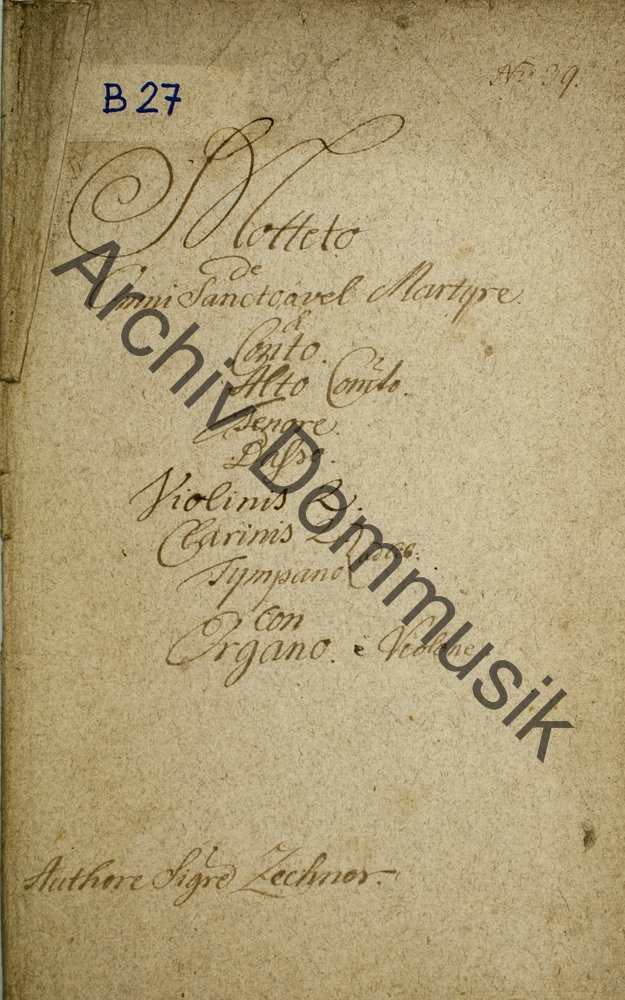 No 39.
B 27
Motteto
de
Omni Sancto àvel Martyre.
à
Canto.
Alto Concto.
Tenore.
Basso.
Violinis 2.
Clarinis 2.
Tympano
con
Organo. è Violone
Authore Sigre Zechner.
Archiv Dommusik